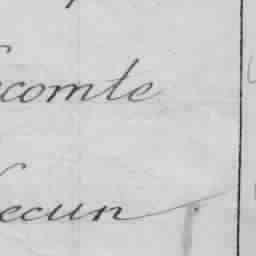 ecomte
ecun